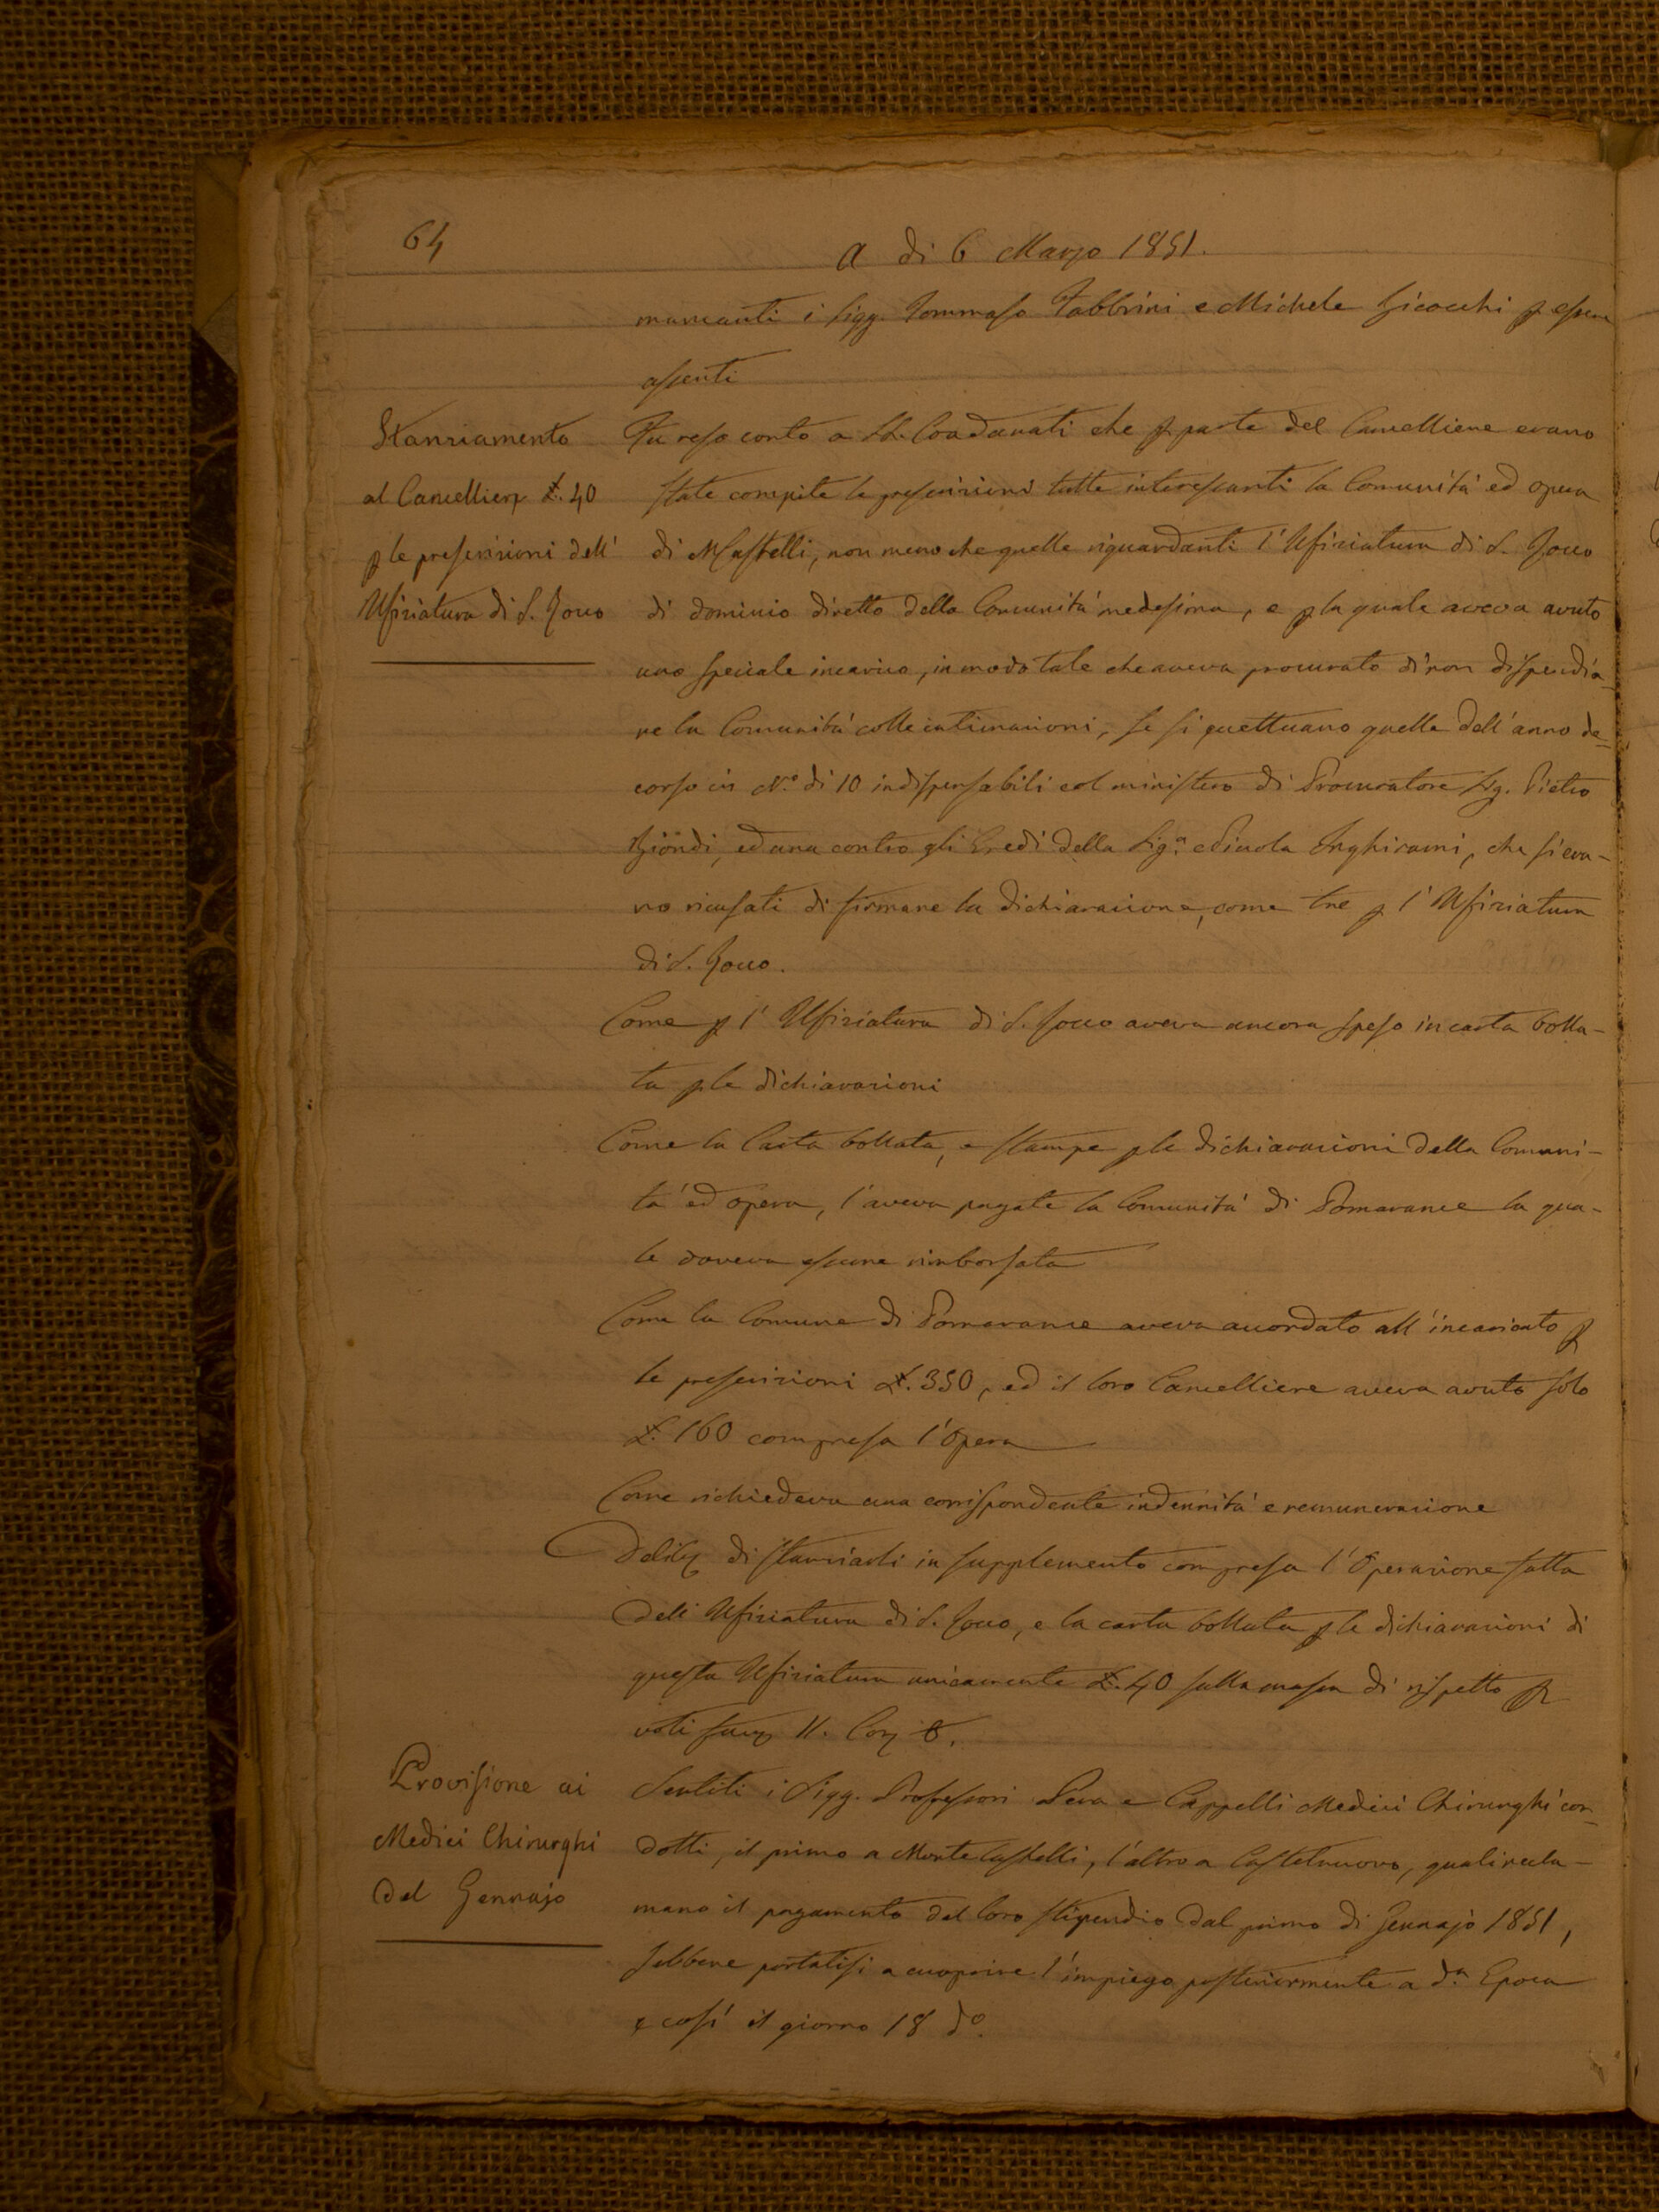 64
A dì 6 Marzo 1851.
mancanti i Sigg. Tommaso Fabbrini e Michele Bicocchi p essere
assenti
Stanziamento
al Cancellier £. 40
p le prescrizioni dell'
Ufiziatura di S. Rocco
Fu reso conto a Adunati che p parte del Cancelliere erano
state compite le prescrizioni tutte interessanti la Comunità ed opera
di MCastelli, non meno che quelle riguardanti l'Ufiziatura di S. Rocco
di dominio diretto della Comunità medesima, e p la quale aveva avuto
uno speciale incarico, in modo tale che aveva procurato di non dispendia-
re la Comunità colle intimazioni, se si quelle dell'anno de-
corso in N.º di 10 indispensabili col ministero di Procuratore Sig. Pietro
Biondi, ed una contro gli Eredi della Sig.ª Inghirami, che si era-
no ricusati di firmare la dichiarazione, come tre p l'Ufiziatura
di S. Rocco.
Come p l'Ufiziatura di S. Rocco aveva ancora speso in carta bolla-
ta p le dichiarazioni
Come la Carta bollata, e stampe p le dichiarazioni della Comuni-
tà ed opera, l'aveva pagate la Comunità di Pomarance la qua-
le doveva essere rimborsata
Come la Comune di Pomarance aveva accordato all'incaricato p
le prescrizioni £. 350, ed il loro Cancelliere aveva avuto solo
£. 160 compresa l'Opera
Come richiedeva una corrispondente indennità e remunerazione
Delib di stanziarli in supplemento compresa l'Operazione fatta
dell'Ufiziatura di S. Rocco, e la carta bollata p le dichiarazioni di
questa Ufiziatura unicamente £. 40 sulla massa di rispetto p
voti fav 11. Con 0.
Provisione ai
Medici Chirurghi
del Gennajo
Sentiti i Sigg. Professori Pera e Cappelli Medici Chirurghi con-
dotti, il primo a Monte Castelli, l'altro a Castelnuovo, quali recla-
mano il pagamento del loro stipendio dal primo di Gennajo 1851,
sebbene portatisi a cuoprire l'impiego posteriormente a d.ª Epoca
e così il giorno 18 d.º